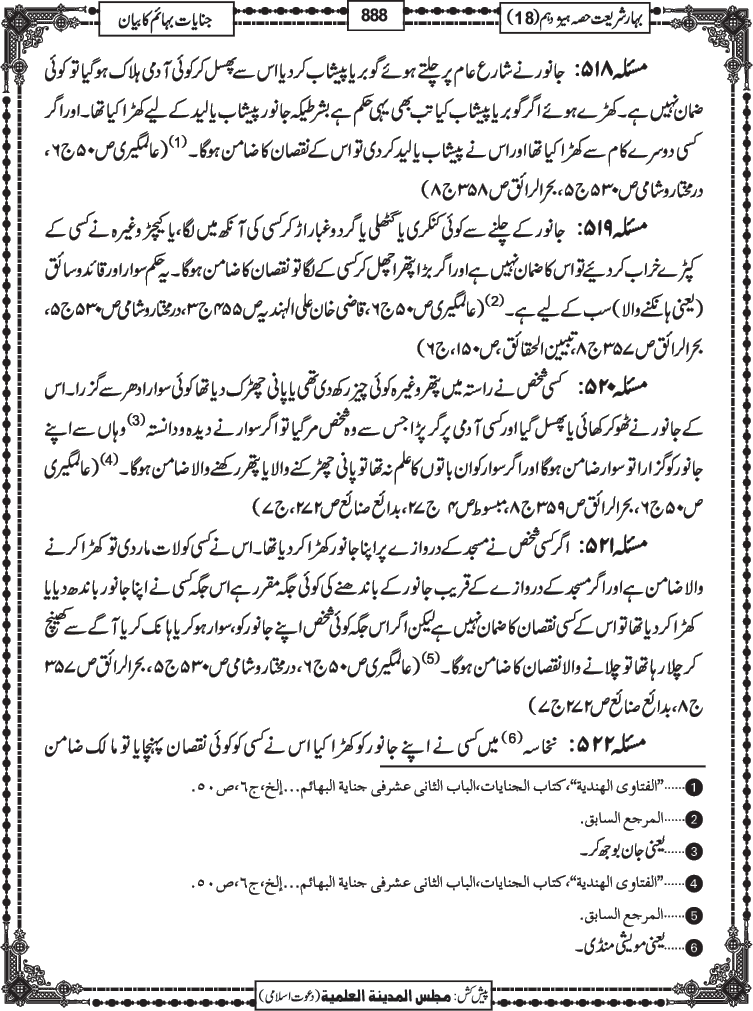 بہارشریعت حصہ ہیژدہم (18)
888
جنایات بہائم کا بیان
مسئلہ ۵۱۸: جانور نے شارع عام پر چلتے ہوئے گوبر یا پیشاب کردیا اس سے پھسل کر کوئی آدمی ہلاک ہوگیا تو کوئی
ضمان نہیں ہے۔ کھڑے ہوئے اگر گوبر یا پیشاب کیا تب بھی یہی حکم ہے بشرطیکہ جانور پیشاب یا لید کے لیے کھڑا کیا تھا۔ اور اگر
کسی دوسرے کام سے کھڑا کیا تھا اور اس نے پیشاب یا لید کردی تو اس کے نقصان کا ضامن ہوگا۔ (1) (عالمگیری ص ۵۰ ج ۶،
درمختار و شامی ص ۵۳۰ ج ۵، بحرالرائق ص ۳۵۸ ج ۸)
مسئلہ ۵۱۹: جانور کے چلنے سے کوئی کنکری یا گٹھلی یا گرد و غبار اڑ کر کسی کی آنکھ میں لگا، یا کیچڑ وغیرہ نے کسی کے
کپڑے خراب کردئیے تو اس کا ضمان نہیں ہے اور اگر بڑا پتھر اچھل کر کسی کے لگا تو نقصان کا ضامن ہوگا۔ یہ حکم سوار اور قائد و سائق
(یعنی ہانکنے والا) سب کے لیے ہے۔ (2) (عالمگیری ص ۵۰ ج ۶، قاضی خان علی الہندیہ ص ۴۵۵ ج ۳، درمختار و شامی ص ۵۳۰ ج ۵،
بحرالرائق ص ۳۵۷ ج ۸، تبیین الحقائق، ص ۱۵۰، ج ۶)
مسئلہ ۵۲۰: کسی شخص نے راستہ میں پتھر وغیرہ کوئی چیز رکھ دی تھی یا پانی چھڑک دیا تھا کوئی سوار ادھر سے گزرا۔ اس
کے جانور نے ٹھوکر کھائی یا پھسل گیا اور کسی آدمی پر گر پڑا جس سے وہ شخص مرگیا تو اگر سوار نے دیدہ و دانستہ (3) وہاں سے اپنے
جانور کو گزارا تو سوار ضامن ہوگا اور اگر سوار کو ان باتوں کا علم نہ تھا تو پانی چھڑکنے والا یا پتھر رکھنے والا ضامن ہوگا۔ (4) (عالمگیری
ص ۵۰ ج ۶، بحرالرائق ص ۳۵۹ ج ۸، مبسوط ص ۴ ج ۲۷، بدائع صنائع ص ۲۷۲، ج ۷)
مسئلہ ۵۲۱: اگر کسی شخص نے مسجد کے دروازے پر اپنا جانور کھڑا کردیا تھا۔ اس نے کسی کو لات ماردی تو کھڑا کرنے
والا ضامن ہے اور اگر مسجد کے دروازے کے قریب جانور کے باندھنے کی کوئی جگہ مقرر ہے اس جگہ کسی نے اپنا جانور باندھ دیا یا
کھڑا کردیا تھا تو اس کے کسی نقصان کا ضمان نہیں ہے لیکن اگر اس جگہ کوئی شخص اپنے جانور کو، سوار ہوکر یا ہانک کر یا آگے سے کھینچ
کر چلا رہا تھا تو چلانے والا نقصان کا ضامن ہوگا۔ (5) (عالمگیری ص ۵۰ ج ۶، درمختار و شامی ص ۵۳۰ ج ۵، بحرالرائق ص ۳۵۷
ج ۸، بدائع صنائع ص ۲۷۲ ج ۷)
مسئلہ ۵۲۲: نخاسہ (6) میں کسی نے اپنے جانور کو کھڑا کیا اس نے کسی کو کوئی نقصان پہنچایا تو مالک ضامن
1 ......"الفتاوى الهندية"، كتاب الجنايات،الباب الثانى عشرفى جناية البهائم...إلخ،ج٦،ص٥٠.
2 ......المرجع السابق.
3 ......یعنی جان بوجھ کر۔
4 ......"الفتاوى الهندية"، كتاب الجنايات،الباب الثانى عشرفى جناية البهائم...إلخ،ج٦،ص٥٠.
5 ......المرجع السابق.
6 ......یعنی مویشی منڈی۔
پیش کش: مجلس المدینة العلمیة (دعوت اسلامی)